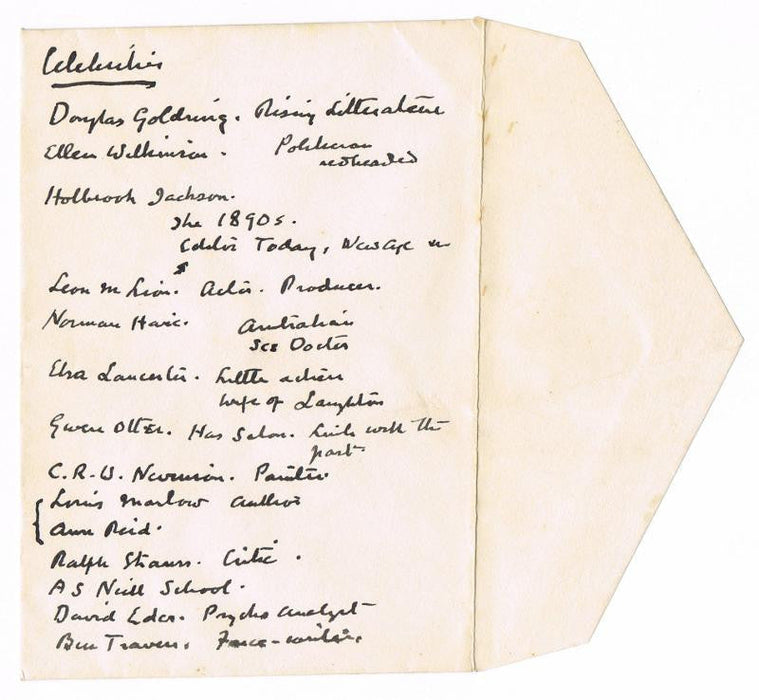 Celebrities
Douglas Goldring. Rising Litterateur
Ellen Wilkinson. Politician
redheaded
Holbrook Jackson.
The 1890s.
Editor Today, New Age
Leon M Lion. Actor. Producer.
Norman Haire. Australian
Sex Doctor
Elsa Lancester. Little actress
wife of Laughton
Gwen Otter. Has Salon. Link with the
past
C.R.W. Nevinson. Painter
Louis Marlow author
Ann Reid.
Ralph Straus. Critic.
A S Neill School.
David Eder. Psycho Analyst
Ben Travers. Farce-writer